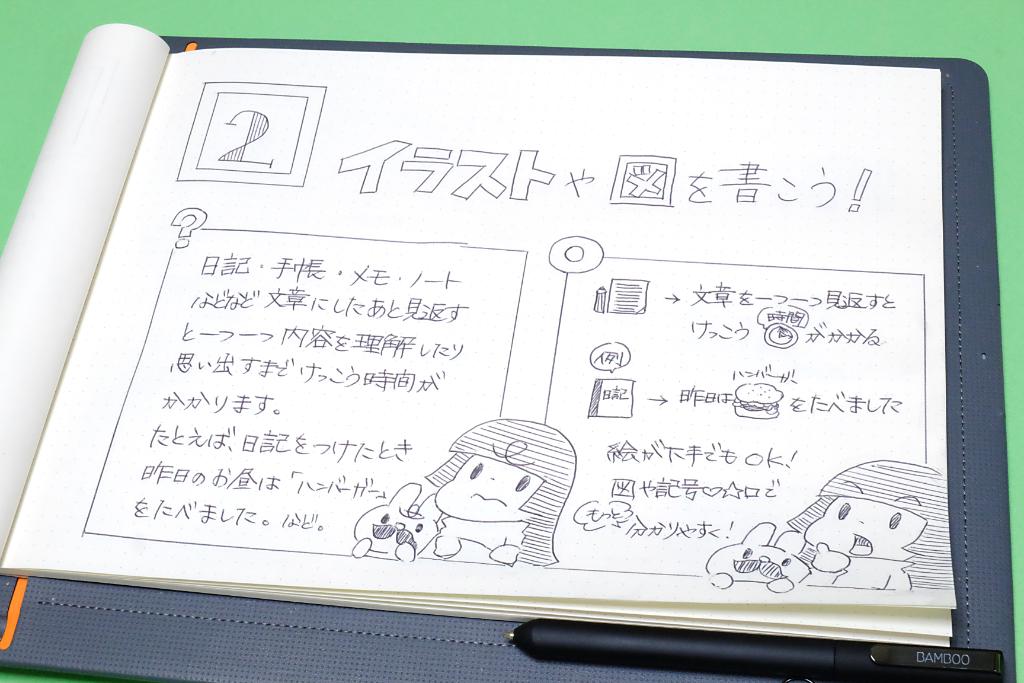 2
イラストや図を書こう!
?
日記・手帳・メモ・ノート
などなど文章にしたあと見返す
と一つ一つ内容を理解したり
思い出すまでけっこう時間が
かかります。
たとえば、日記をつけたとき
昨日のお昼は「ハンバーガー」
をたべました。など。
→ 文章を一つ一つ見返すと
けっこう 時間 がかかる
例
日記 → 昨日は ハンバーガー をたべました
絵が下手でもOK!
図や記号♡☆□で
もっと分かりやすく!
BAMBOO